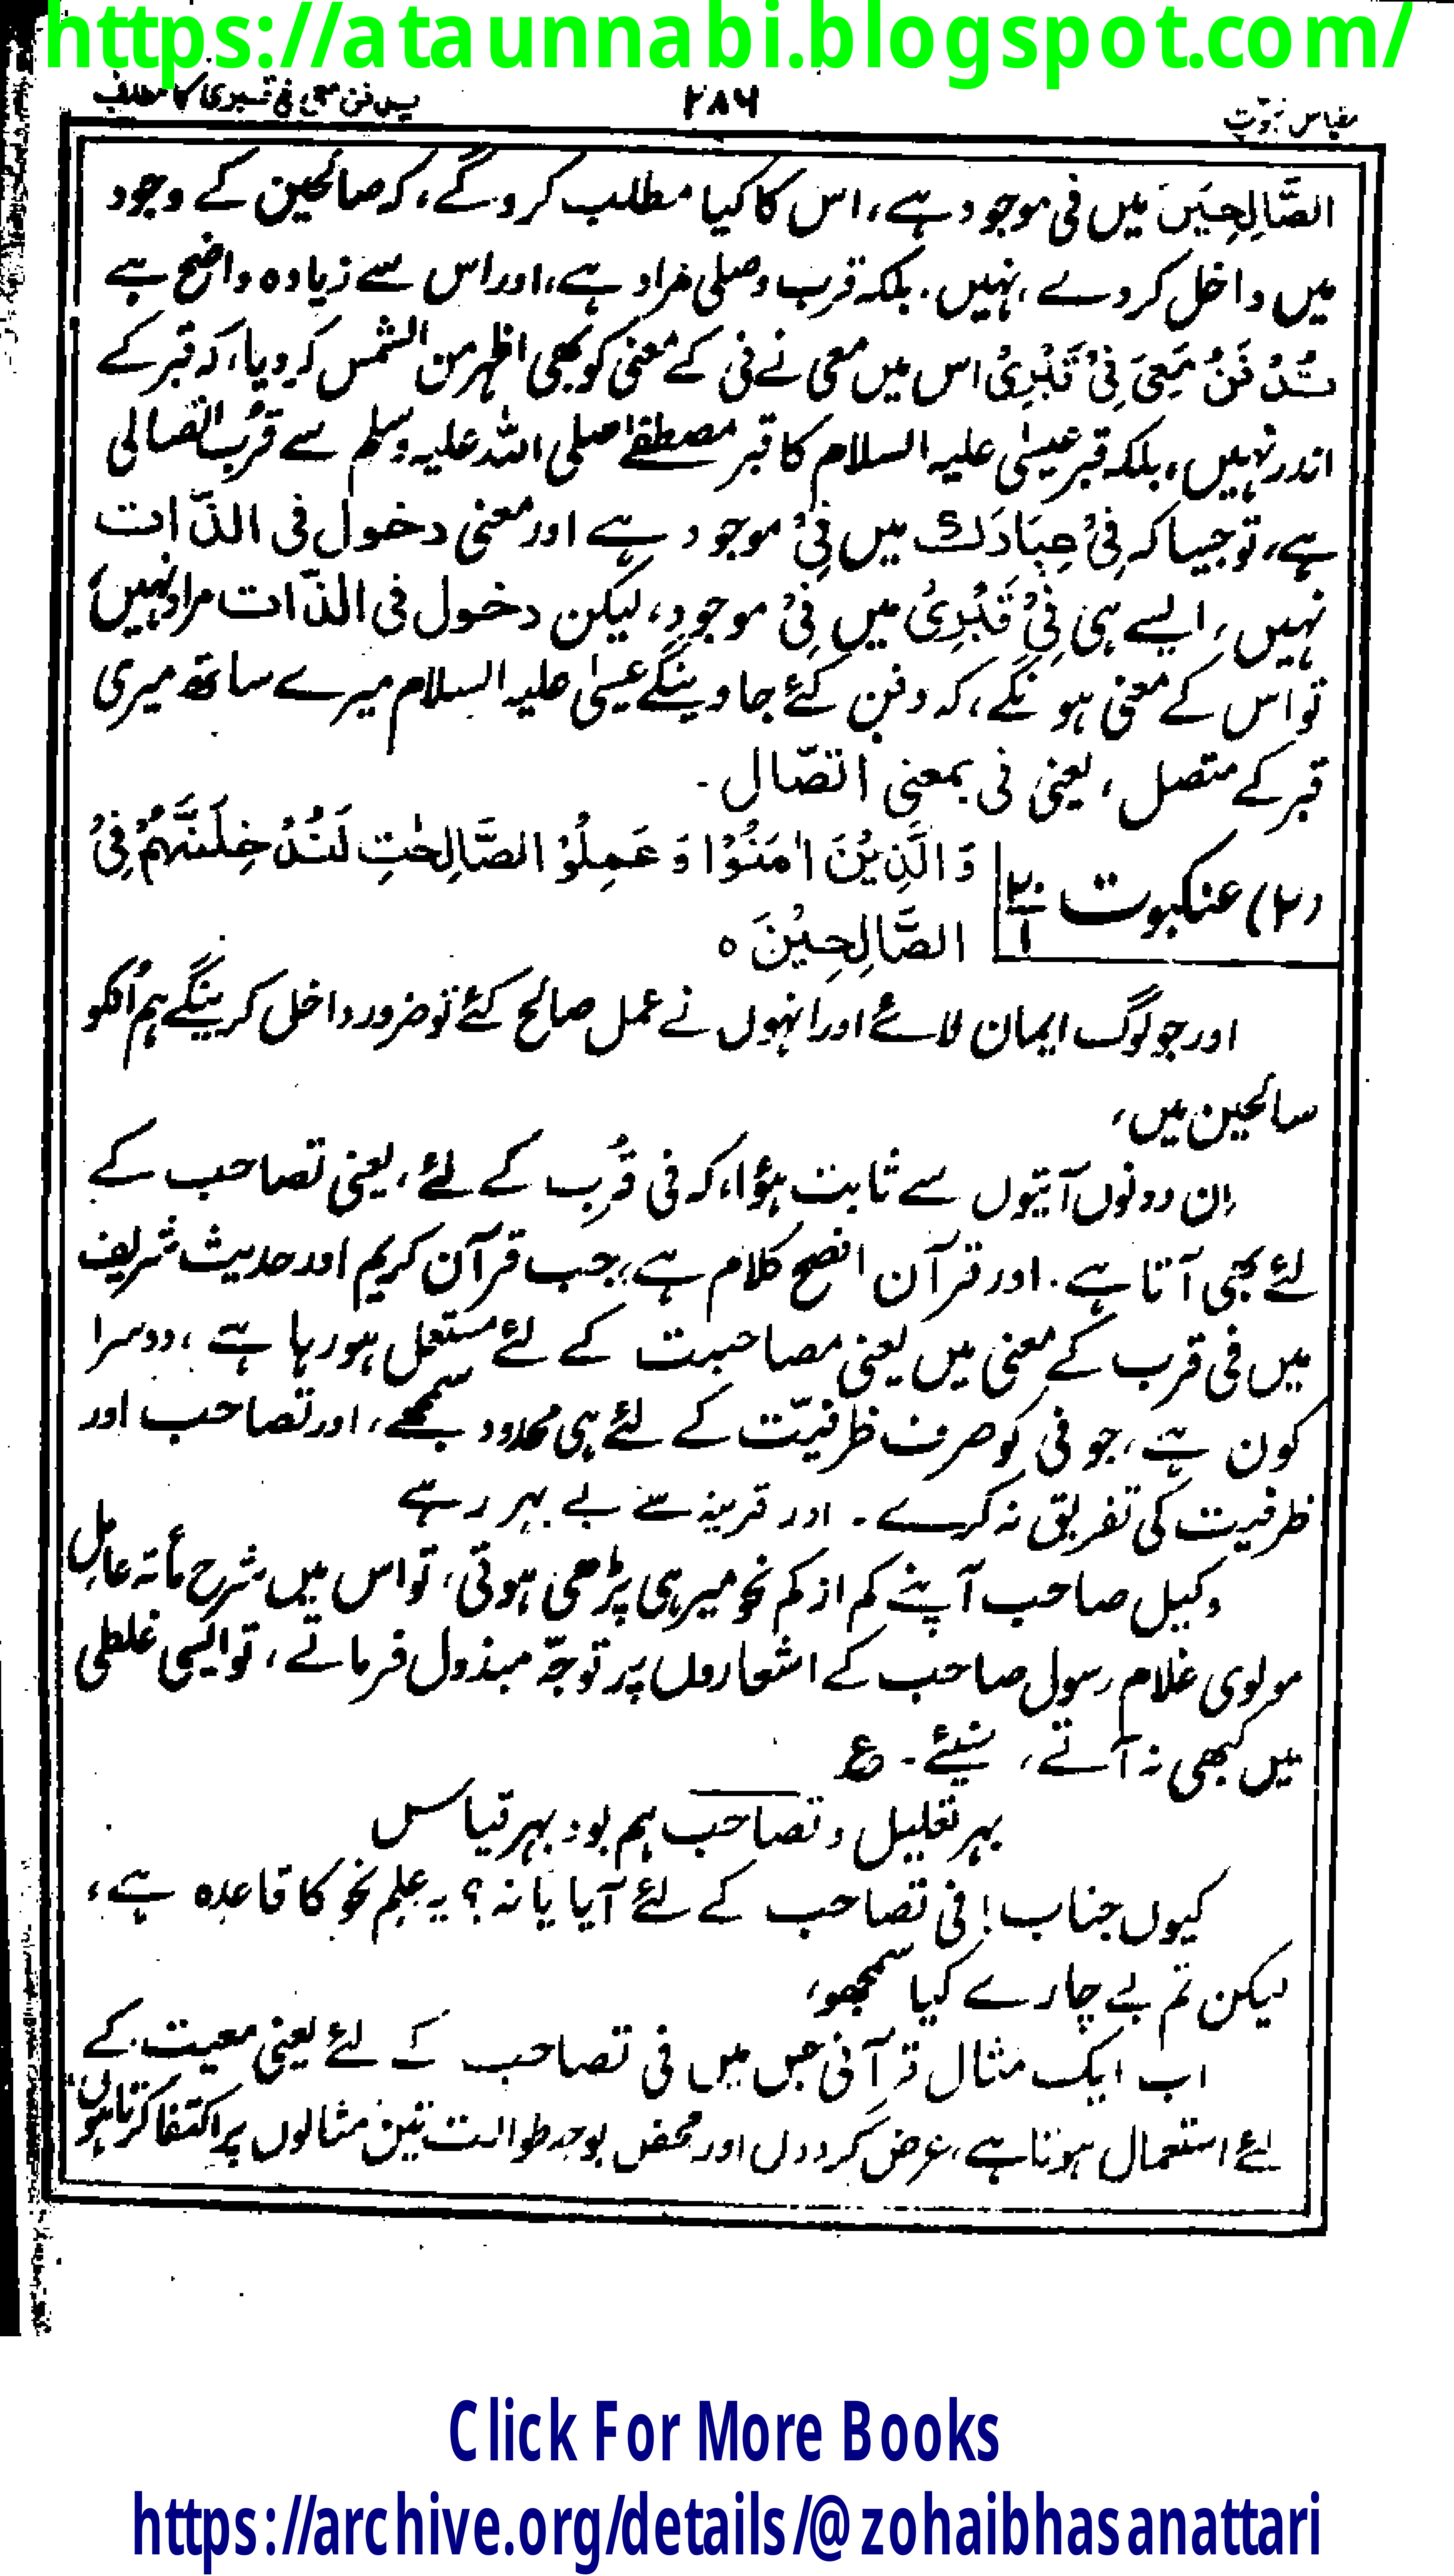 https://ataunnabi.blogspot.com/
مقیاس نبوّت
۲۸۶
یدفن معی فی قبری کا مطلب
الصَّالِحِیْنَ میں فی موجود ہے، اس کا کیا مطلب کروگے، کہ صالحین کے وجود
میں داخل کردے، نہیں۔ بلکہ قرب وصلی مراد ہے، اور اس سے زیادہ واضح ہے
یُدْفَنُ مَعِیَ فِیْ قَبْرِیْ اس میں معی نے فی کے معنی کو بھی اظہر من الشمس کر دیا، کہ قبر کے
اندر نہیں، بلکہ قبر عیسٰی علیہ السلام کا قبر مصطفےٰ صلی اللہ علیہ وسلم سے قرُب اتصالی
ہے، تو جیسا کہ فِیْ عِبَادِكَ میں فِیْ موجود ہے اور معنی دخول فی الذّات
نہیں، ایسے ہی فِیْ قَبْرِیْ میں فِیْ موجود، لیکن دخول فی الذّات مراد نہیں،
تو اس کے معنی ہونگے، کہ دفن کئے جاوینگے عیسٰی علیہ السلام میرے ساتھ میری
قبر کے متصل، یعنی فی بمعنی اتصّال۔
(۲) عنکبوت ۲۰/۱
وَالَّذِیْنَ اٰمَنُوْا وَعَمِلُوْ الصَّالِحٰتِ لَنُدْخِلَنَّہُمْ فِیْ
الصَّالِحِیْنَ ہ
اور جو لوگ ایمان لائے اور انہوں نے عمل صالح کئے تو ضرور داخل کرینگے ہم اُنکو
سالحین میں،
اِن دونوں آیتوں سے ثابت ہؤا، کہ فی قُرب کے لئے، یعنی تصاحب کے
لئے بھی آتا ہے۔ اور قرآن افصح کلام ہے، جب قرآن کریم اور حدیث شریف
میں فی قرب کے معنی میں یعنی مصاحبت کے لئے مستعمل ہو رہا ہے، دوسرا
کون ہے، جو فی کو صرف ظرفیّت کے لئے ہی محدود سمجھے، اور تصاحب اور
ظرفیت کی تفریق نہ کرے۔ اور قرینہ سے بے بہر رہے
وکیل صاحب آپنے کم از کم نحو میر ہی پڑھی ہوتی، تو اس میں شرح مأتہ عامِل
مولوی غلام رسول صاحب کے اشعاروں پر توجّہ مبذول فرماتے، تو ایسی غلطی
میں کبھی نہ آتے، سُنیئے۔ ع
بہر تعلیل و تصاحب ہم بود بہر قیاس
کیوں جناب! فی تصاحب کے لئے آیا یا نہ؟ یہ علِم نحو کا قاعدہ ہے،
لیکن تم بے چارے کیا سمجھو،
اب ایک مثال قرآنی جس میں فی تصاحب کے لئے یعنی معیت کے
لئے استعمال ہوتا ہے، عرض کردوں اور محض بوجہ طوالت تین مثالوں پر اکتفا کرتا ہوں
Click For More Books
https://archive.org/details/@zohaibhasanattari